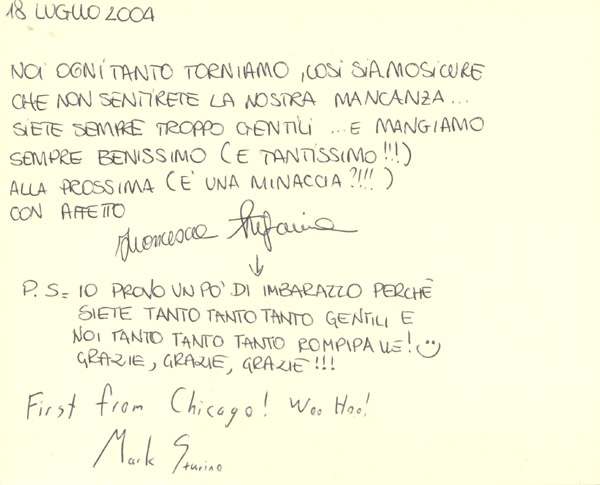 18 LUGLIO 2004
NOI OGNI TANTO TORNIAMO, COSÌ SIAMO SICURE
CHE NON SENTIRETE LA NOSTRA MANCANZA...
SIETE SEMPRE TROPPO GENTILI ... E MANGIAMO
SEMPRE BENISSIMO (E TANTISSIMO!!!)
ALLA PROSSIMA (E' UNA MINACCIA?!!!)
CON AFFETTO
Francesca Stefania
P.S= IO PROVO UN PO' DI IMBARAZZO PERCHÈ
SIETE TANTO TANTO TANTO GENTILI E
NOI TANTO TANTO TANTO ROMPIPALLE!
GRAZIE, GRAZIE, GRAZIE!!!
First from Chicago! Woo Hoo!
Mark Sturino